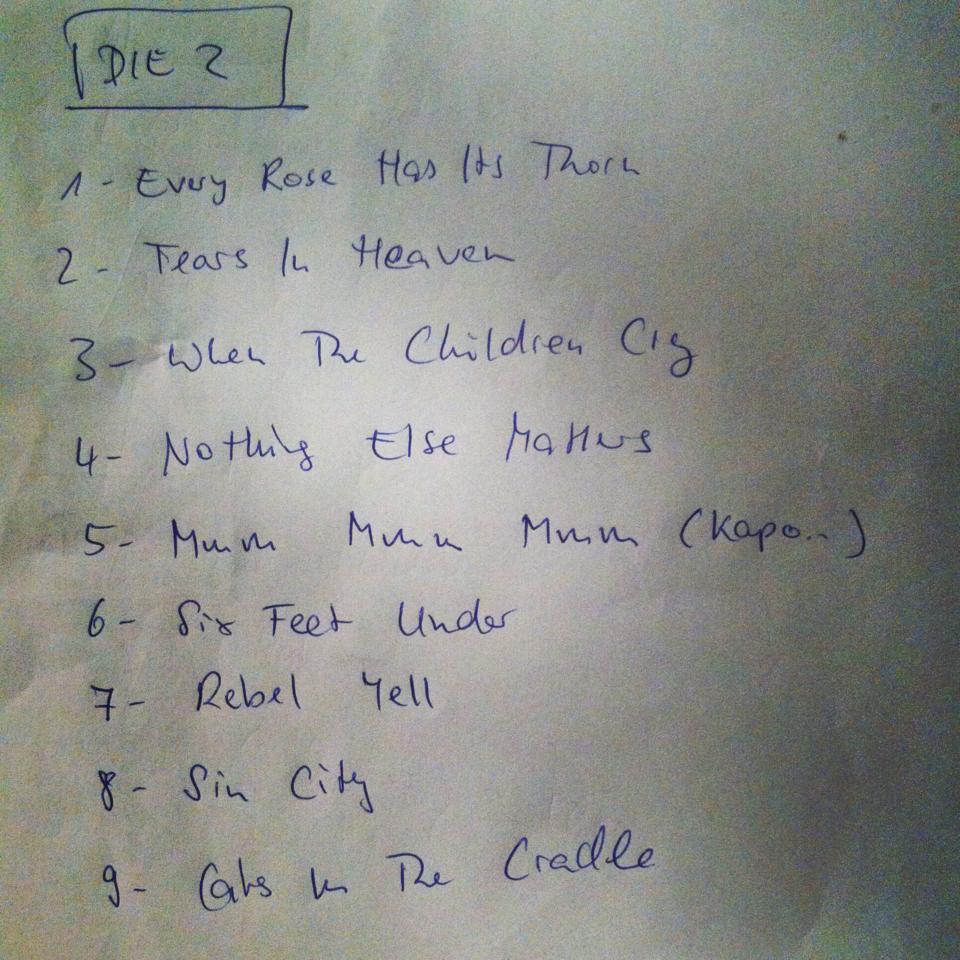 DIE 2
1- Every Rose Has Its Thorn
2- Tears In Heaven
3- When The Children Cry
4- Nothing Else Matters
5- Mmm Mmm Mmm (Kapo..)
6- Six Feet Under
7- Rebel Yell
8- Sin City
9- Cats In The Cradle